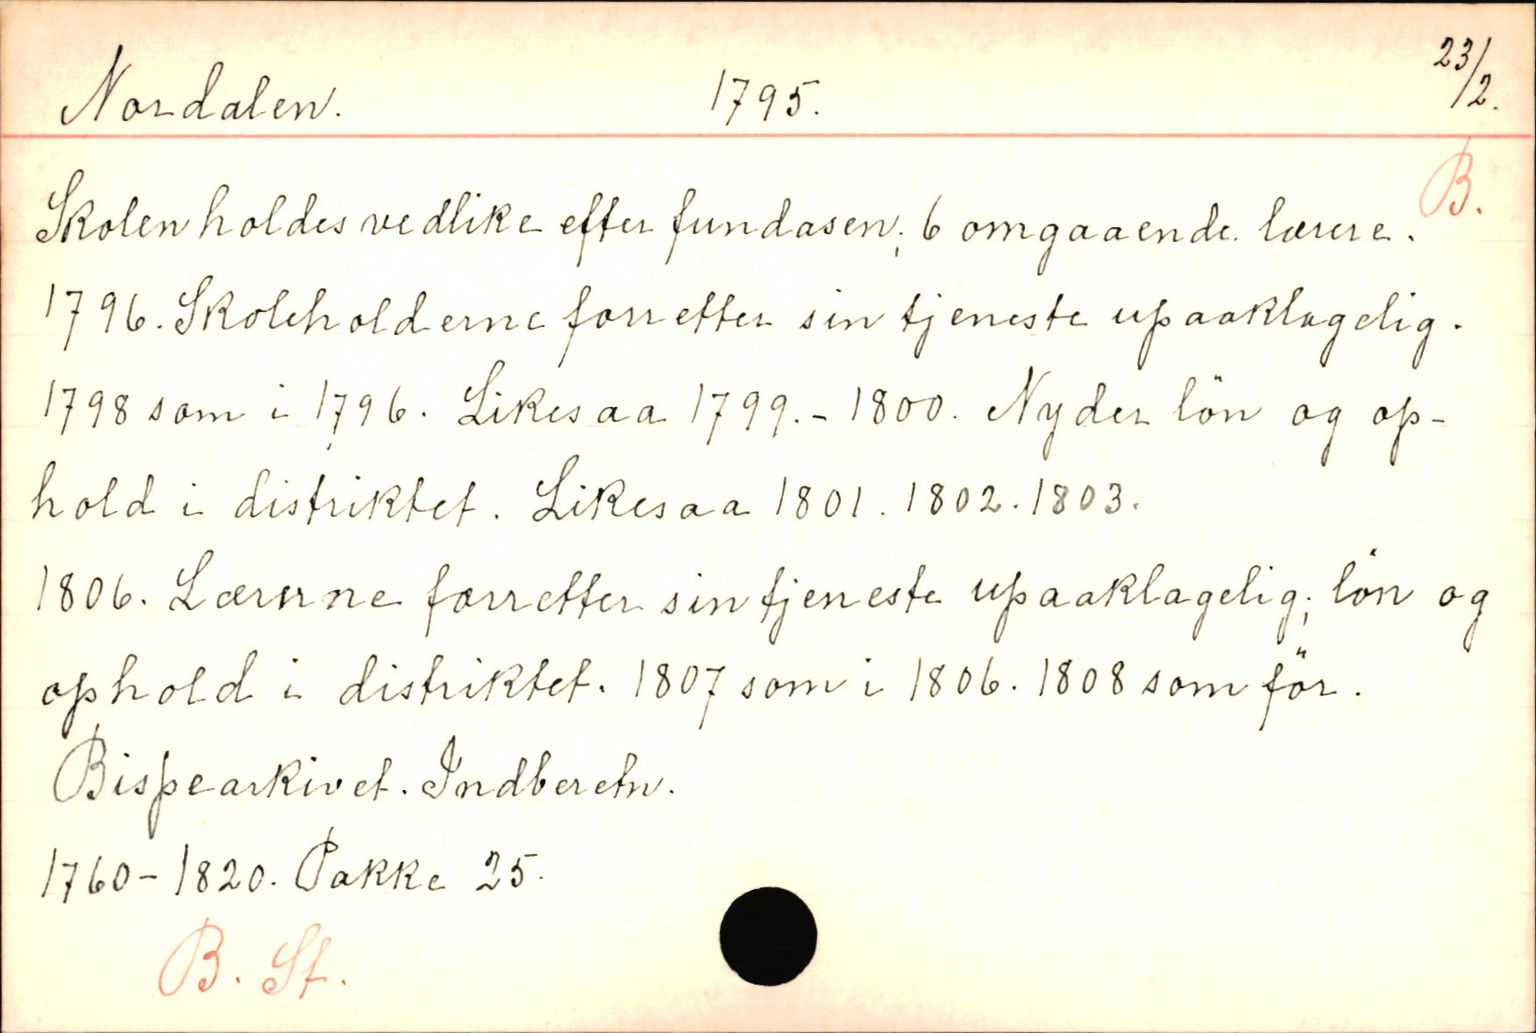 Nordalen. 1795. 23/2.
B.
Skolen holdes vedlike efter fundasen; 6 omgaaende lærere.
1796. Skoleholderne forretter sin tjeneste upaaklagelig.
1798 som i 1796. Likesaa 1799.- 1800. Nyder lön og op-
hold i distriktet. Likesaa 1801. 1802. 1803.
1806. Lærerne forretter sin tjeneste upaaklagelig; lön og
ophold i distriktet. 1807 som i 1806. 1808 som för.
Bispearkivet. Indberetn.
1760-1820. Pakke 25.
B. St.